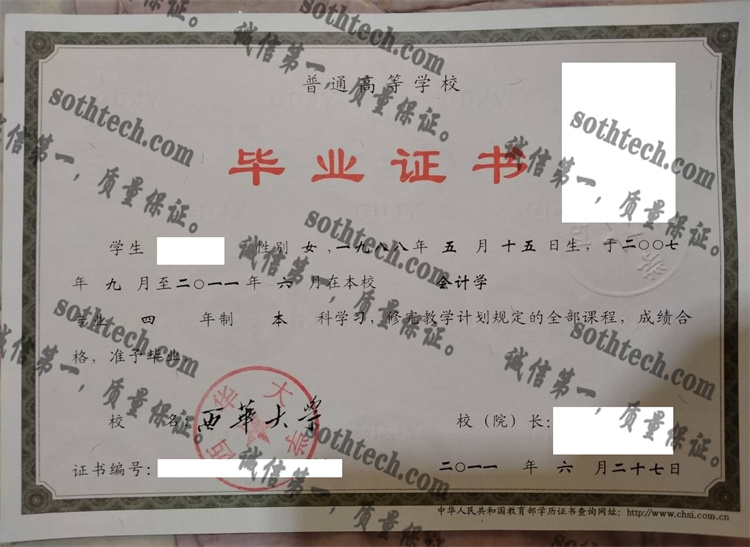 普通高等学校
毕业证书
学生 性别 女 ,一九八八年 五 月 十五 日生, 于二〇〇七
年 九 月至二〇一一年 六 月在本校 会计学
专业 四 年制 本 科学习, 修完教学计划规定的全部课程, 成绩合
格, 准予毕业。
校 名: 西華大學 校（院）长:
西华大学
证书编号: 二〇一一 年 六 月二十七日
中华人民共和国教育部学历证书查询网址: http://www.chsi.com.cn
sothtech.com
诚信第一，质量保证。
sothtech.com
诚信第一，质量保证。
sothtech.com
诚信第一，质量保证。
sothtech.com
诚信第一，质量保证。
sothtech.com
诚信第一，质量保证。
sothtech.com
诚信第一，质量保证。
sothtech.com
诚信第一，质量保证。
sothtech.com
诚信第一，质量保证。